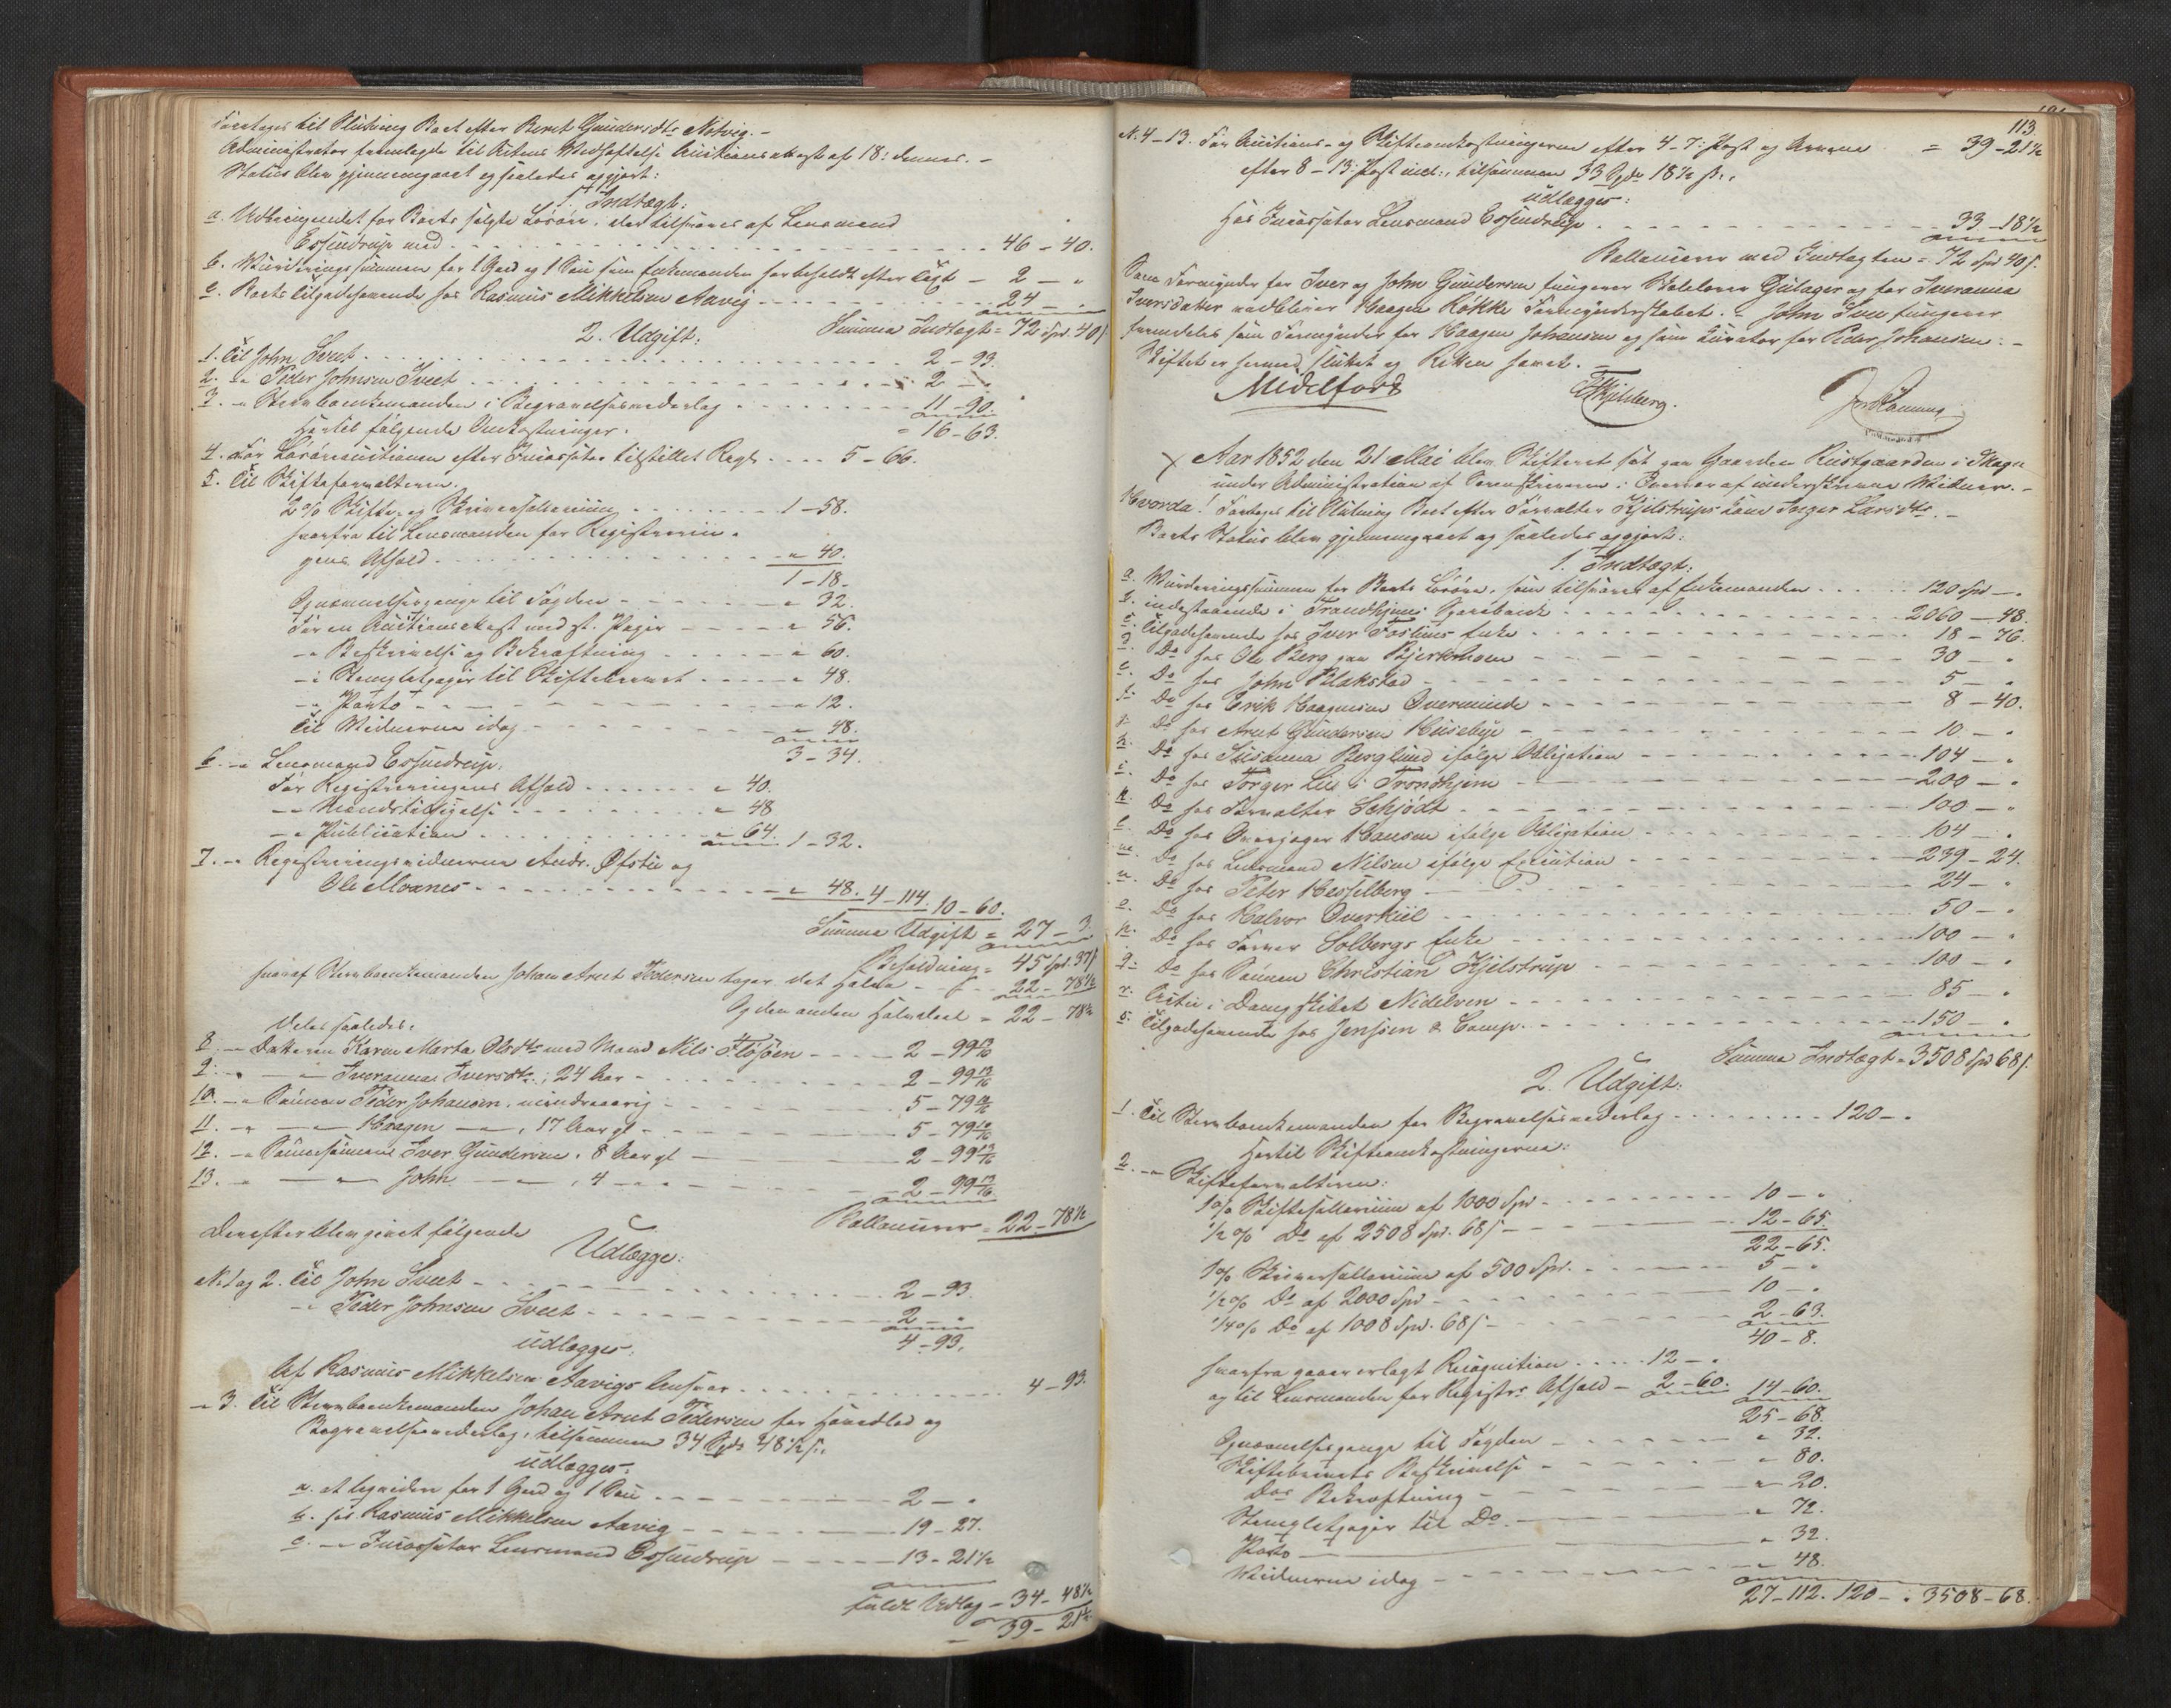 Foretages til Slutning Boet efter Beret Gundersdtr Notvig. –
Administrator fremlagde til Rettens Vedheftelse Auctionsakost af 18: dennes. –
Status blev gjennemgaaet og saaledes opgjort:
1. Indtægt:
a. Udbringendet for Boets solgte Løsøre, der tilsvares af Lensmand
Essendrup med 46 – 40.
b. Vurderingssummen for 1 Gjed og 1 Sau som Enkemanden har beholdt efter Taxt – 2 – "
c. Boets Tilgodehavende hos Rasmus Mikkelsen Aavig 24 – "
Summa Indtægt = 72 Spd. 40 s
2. Udgift:
1. Til John Sveet 2 – 93.
2. – " Peder Johnsen Sveet 2 – "
3. – " Stervboenkemanden i Begravelsesvederlag 11 – 90.
= 16 – 63.
Hertil følgende Omkostninger.
4. For Løsøreauctionen efter Incassator tilstillet Regl. 5 – 66.
5. Til Skifteforvalteren.
2 % Skifte- og Skriversallarium 1 – 58.
hvorfra til Lensmanden for Registrerin-
gens Afhold " 40.
1 – 18.
Opnævnelsespenge til Fogden " 32.
For en Auctionsakost med st. Papir " 56.
– " Beskrivelse og Bekræftning " 60.
– i Stempletpapir til Skiftebrevet " 48.
– " Porto " 12.
Til Vidnerne idag " 48.
3 – 34.
6. – " Lensmand Essendrup.
For Registreringens Afhold " 40.
– " Mændstilsigelse " 48
– " Publication " 64. 1 – 32.
7. – " Registreringsvidnerne Andr. Øfsti og
Ole Moanes " 48. 4 – 114. 10 – 60.
Summa Udgift = 27 – 3.
Beholdning = 45 Spd. 37 s
hvoraf Stervboenkemanden Johan Arnt Pedersen tager det halve 22 – 78½
Og den anden Halvdeel = 22 – 78½
deles saaledes:
8. – Datteren Karen Marta Olsdtr med Mand Nils Fløsøen 2 – 99 13/16
9. – " Iveranna Iversdtr, 24 Aar 2 – 99 13/16
10. – " Sønnen Peder Johansen, mindreaarig 5 – 79 10/16
11. – " – Haagen – " , 17 Aar gl 5 – 79 10/16
12. – " Sønnesønnene Iver Gundersen, 8 Aar gl 2 – 99 13/16
13. – " – John – " , 4 – " 2 – 99 13/16
Ballancerer = 22 – 78½
Derefter blev givet følgende
Udlægge:
No 1 og 2. Til John Sveet 2 – 93
– " Peder Johnsen Sveet 2 – "
4 – 93.
udlægges:
Af Rasmus Mikkelsen Aavigs Ansvar 4 – 93.
– " 3. Til Stervboenkemanden Johan Arnt Pedersen for Hovedlod og
Begravelsesvederlag, tilsammen 34 Spd 48½ s,
udlægges:
a. at liqvidere for 1 Gjed og 1 Sau 2 – "
b. hos Rasmus Mikkelsen Aavig 19 – 27.
c. – " Incassator Lensmand Essendrup 13 – 21½
fuldt Udlæg = 34 – 48½
= 39 – 21½
113.
No. 4–13. For Auctions- og Skifteomkostningerne efter 4–7: Post og Arvene = 39 – 21½
efter 8–13: Post incl:, tilsammen 33 Spd 18½ s.,
udlægges:
Hos Incassator Lensmand Essendrup 33 – 18½
Ballancerer med Indtægten = 72 Spd 40 s.
Som Formynder for Iver og John Gundersen fungerer Gulager og for Iveranna
Iversdatter vedbliver Haagen Røkke Formynderskabet. – John Sveet fungerer
fremdeles som Formynder for Haagen Johansen og som Curator for Peder Johansen: –
Skiftet er hermed sluttet og Retten hævet. –
Midelfart
Aar 1852 den 21 Mai blev Skifteret sat paa Gaarden Rustgaarden i Skogn
under Administration af Sorenskriveren i Overvær af underskrevne Vidner. –
Hvorda! Foretages til Slutning Boet efter Forvalter Kjelstrups Kone Inger Larsdtr. –
Boets Status blev gjennemgaaet og saaledes opgjort:
1. Indtægt:
a. Vurderingssummen for Boets Løsøre, som tilsvares af Enkemanden 120 Spd – "
b. indestaaende i Trondhjems Sparebank 2060 – 48.
c. Tilgodehavende hos Iver Foslums Enke 18 – 76.
d. Do hos Ole Berg paa Bjerkhoen 30 – "
e. Do hos John Plakstad 5 – "
f. Do hos Erik Haagensen Overmunde 8 – 40.
g. Do hos Arnt Gundersen Huseby 10 – "
h. Do hos Susanna Berglund ifølge Obligation 104 – "
i. Do hos Torger Lie i Trondhjem 200 – "
k. Do hos Forvalter Schjødt 100 – "
l. Do hos Overjæger Hansen ifølge Obligation 104 – "
m. Do hos Lensmand Nilsen ifølge Execution 239 – 24.
n. Do hos Peter Hesselberg 24 – "
o. Do hos Halvor Overkiil 50 – "
p. Do hos Farver Solbergs Enke 100 – "
q. Do hos Sønnen Christian Kjelstrup 100 – "
r. Actie i Dampskibet Nidelven 85 – "
s. Tilgodehavende hos Jenssen & Comp. 150 – "
Summa Indtægt = 3508 Spd 68 s.
2. Udgift:
1. Til Stervboenkemanden for Begravelsesvederlag 120 – "
Hertil Skifteomkostningerne:
2. – " Skifteforvalteren:
1 % Skiftesallarium af 1000 Spd 10 – "
½ % Do af 2508 Spd. 68 s 12 – 65.
22 – 65.
1 % Skriversallarium af 500 Spd. 5 – "
½ % Do af 2000 Spd 10 – "
¼ % Do af 1008 Spd. 68 s 2 – 63.
40 – 8.
hvorfra gaaer erlagt Recognition 12 – "
og til Lensmanden for Registr: Afhold – 2 – 60. 14 – 60.
25 – 68.
Opnævnelsespenge til Fogden " 32.
Skiftebrevets Beskrivelse " 80.
Dos Bekræftning " 20.
Stempletpapir til Do " 72.
Porto " 32.
Vidnerne idag " 48.
27 – 112. 120 – " 3508 – 68.